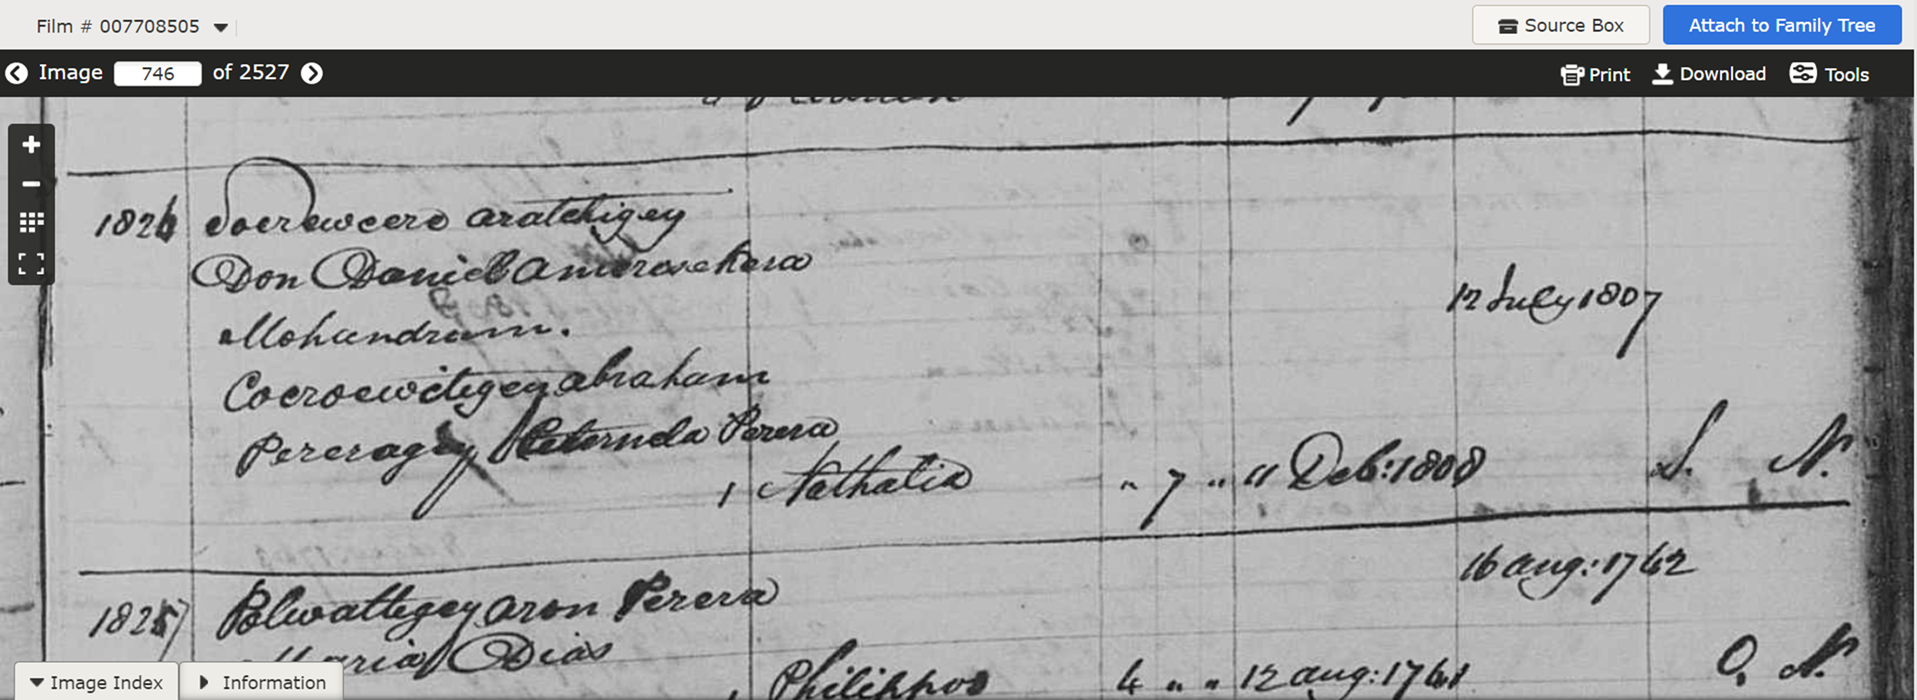 Film # 007708505
Source Box
Attach to Family Tree
Image 746 of 2527
Print
Download
Tools
1826
aratchigey
Don Daniel Amerasekera
Mohundram.
12 July 1807
abraham
Pereragey Perera
1 Nathalia " 7 " " Deb: 1808 S. N.
16 aug: 1762
182
Polwattegey aron Perera
Maria Dias
Philippos 4 " " 12 aug: 1761 O. N.
Image Index
Information